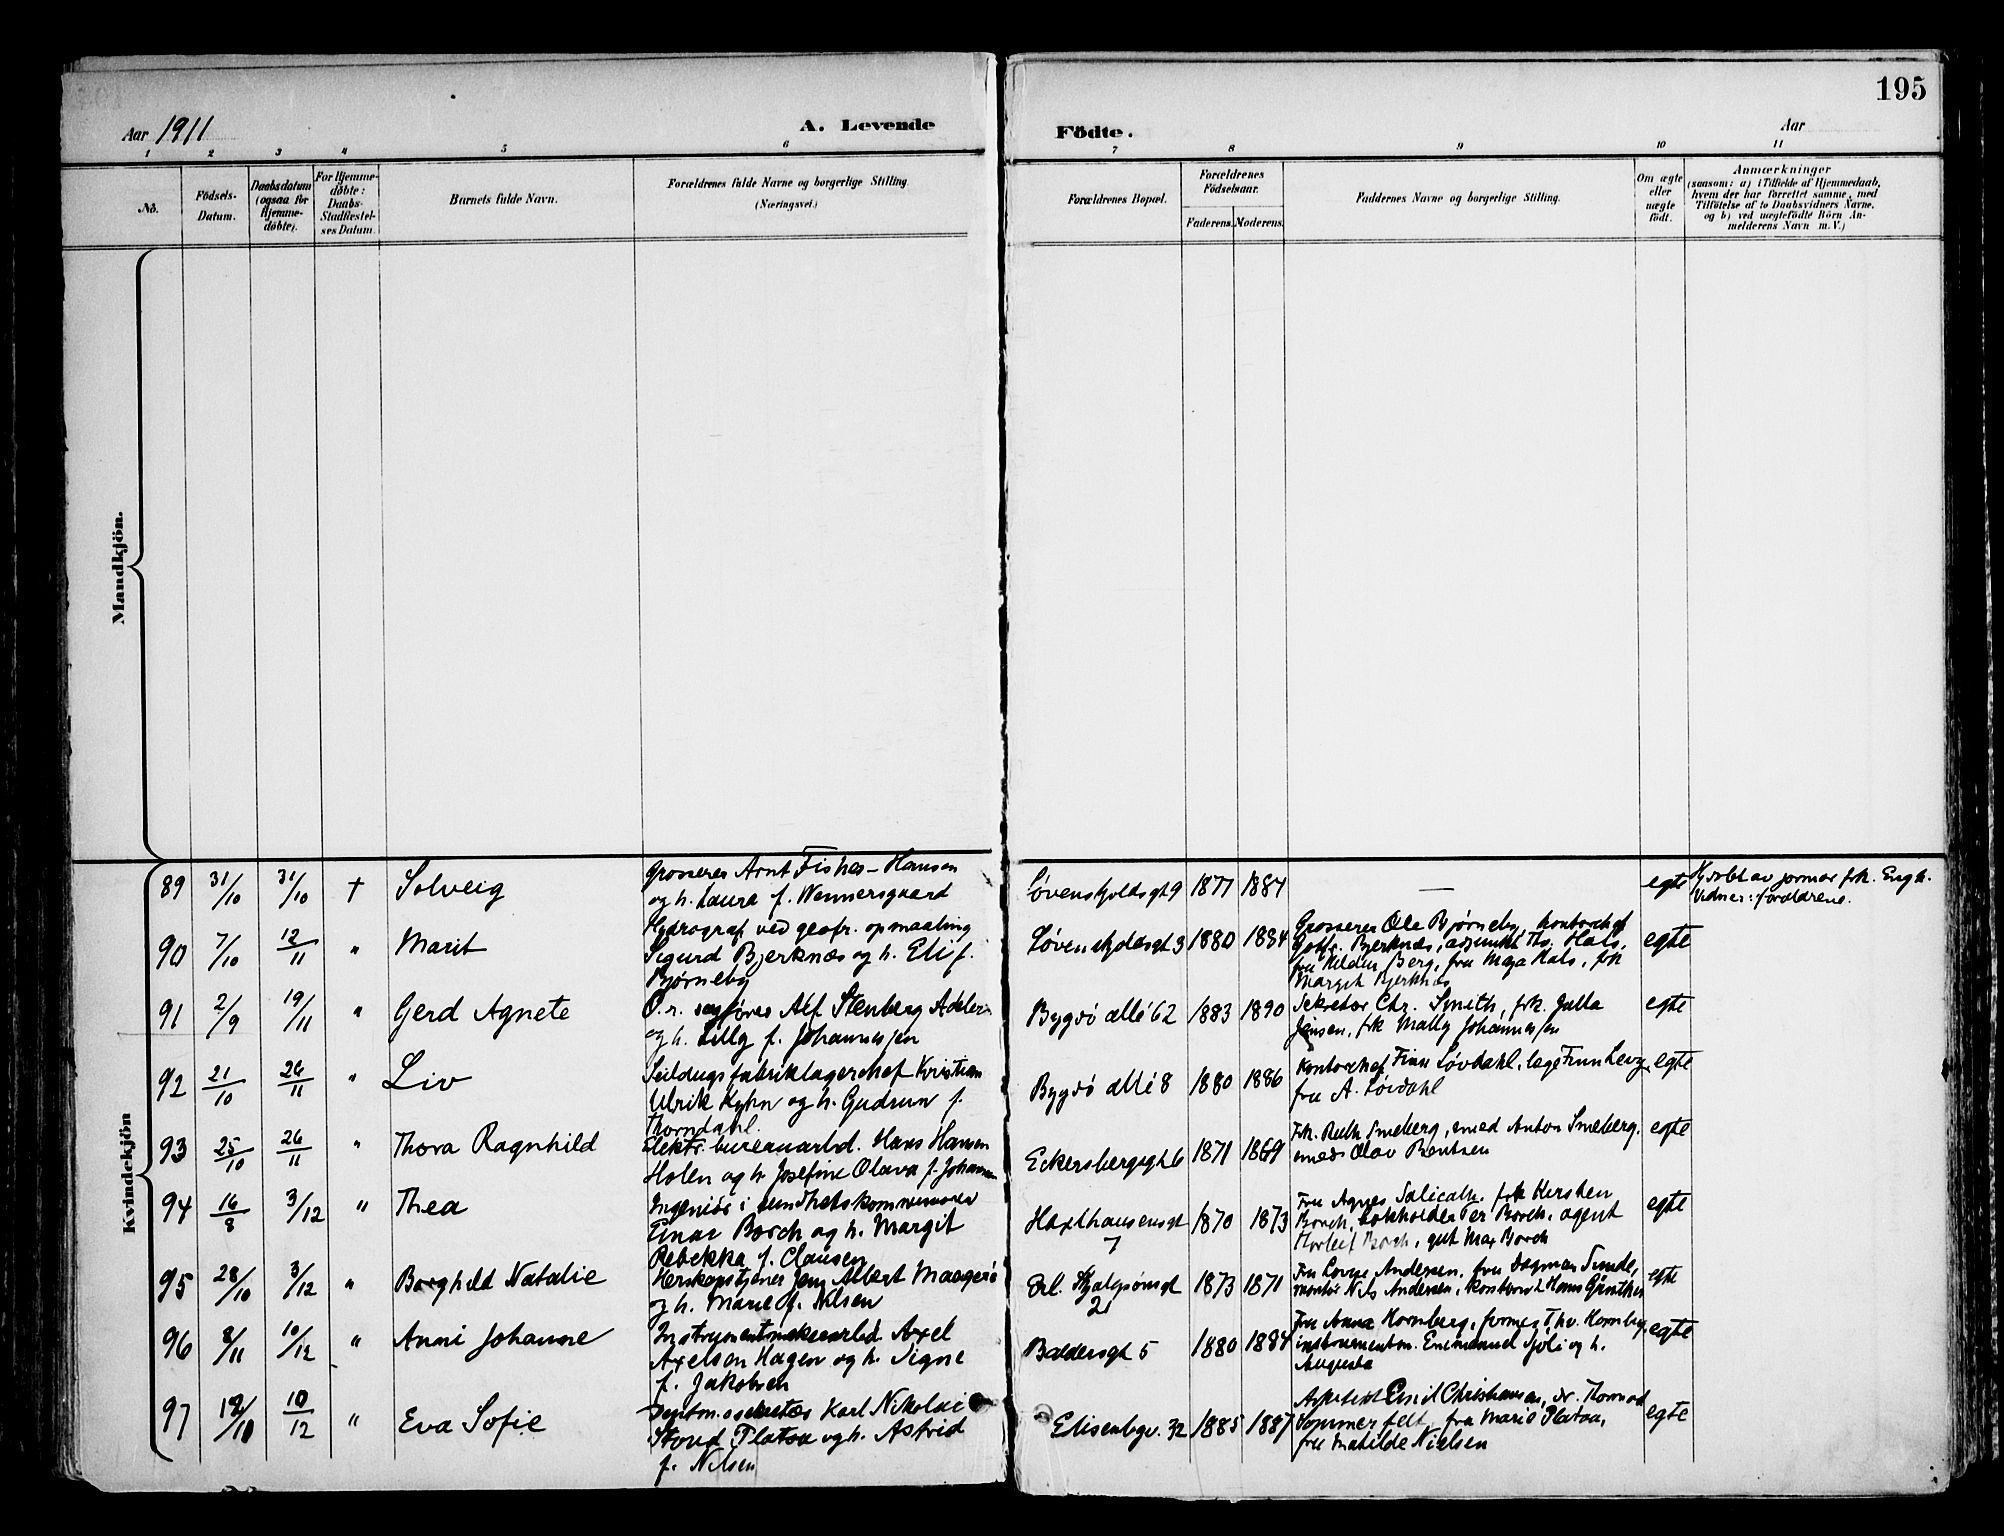 195
Aar 1911
A. Levende
Födte.
Aar
1 2 3 4 5 6 7 8 9 10 11
No.
Födsels-Datum.
Daabsdatum (ogsaa for Hjemme-døbte).
For Hjemme-døbte: Daabs-Stadfæstel-ses Datum.
Barnets fulde Navn.
Forældrenes fulde Navne og borgerlige Stilling. (Næringsvei.)
Forældrenes Bopæl.
Forældrenes Födselsaar.
Faderens. Moderens.
Faddernes Navne og borgerlige Stilling.
Om ægte eller uægte født.
Anmærkninger
(saasom: a) i Tilfælde af Hjemmedaab,
hvem der har forrettet samme, med
Tilföielse af to Daabsvidners Navne,
og b) ved uægtefødte Börn An-
melderens Navn m. V.)
Mandkjön.
Kvindekjön
89 31/10 31/10 † Solveig
Grosserer Arnt Fisher-Hansen
og h. Laura f. Wennersgaard
Løvenskjoldsgt 9 1877 1884 — egte
Hj.døbt av jormor frk. Engh.
Vidner: forældrene.
90 7/10 12/11 " Marit
Hydrograf ved geofr. opmaaling
Sigurd Bjerknæs og h. Eli f.
Bjørneby
Løvenskjoldsgt 3 1880 1884
Grosserer Ole Bjørneby, kontorchef
Gottfr. Bjerknæs, adjunkt Th. Hals,
fru Hildur Berg, fru Maja Hals, frk
Margit Bjerknæs
egte
91 2/9 19/11 " Gerd Agnete
O.r. sagfører Alf Stenberg Adler
og h. Lilly f. Johannessen
Bygdö allé 62 1883 1890
Sekretær Chr. Smith, frk. Julla
Jensen, frk Mally Johannessen
egte
92 21/10 26/11 " Liv
Seildugsfabriklagerchef Kristian
Ulrik Kyhn og h. Gudrun f.
Thorndahl.
Bygdö allé 8 1880 1886
Kontorchef Finn Løvdahl, læge Finn Levy,
fru A. Løvdahl
egte
93 25/10 26/11 " Thora Ragnhild
Elektr. bureauarbd. Hans Hansen
Holen og h. Josefine Olava f. Johansen
Eckersbergsgt 6 1871 1869
Frk. Ruth Smeberg, smed Anton Smeberg,
smed Olav Bentsen
egte
94 16/8 3/12 " Thea
Ingeniör i sundhetskommissionen
Einar Borch og h. Margit
Rebekka f. Clausen
Haxthausensgt 7 1870 1873
Fru Agnes Salicath, frk Kirsten
Borch, bokholder Per Borch, agent
Thorleif Borch, gut Max Borch
egte
95 28/10 3/12 " Borghild Natalie
Herskapstjener Jens Albert Maagerö
og h. Marie f. Nilsen
Erl. Skjalgsönsgt 21 1873 1871
Fru Lovise Andersen, fru Dagmar Sunde,
montör Nils Andersen, kontorist Hans Günther
egte
96 8/11 10/12 " Anni Johanne
Instrumentmakerarbd Axel
Axelsen Hagen og h. Signe
f. Jakobsen
Baldersgt 5 1880 1884
Fru Anna Hornberg, former Thv. Hornberg,
instrumentm. Emmanuel Sjöli og h.
Augusta
egte
97 12/10 10/12 " Eva Sofie
sekretær Karl Nikolai
Stoud Platou og h. Astrid
f. Nilsen
Elisenbgv. 32 1885 1887
Arkitekt Emil Christiansen, dr. Thorvald
Sommerfelt, fru Marie Platou,
fru Matilde Nielsen
egte